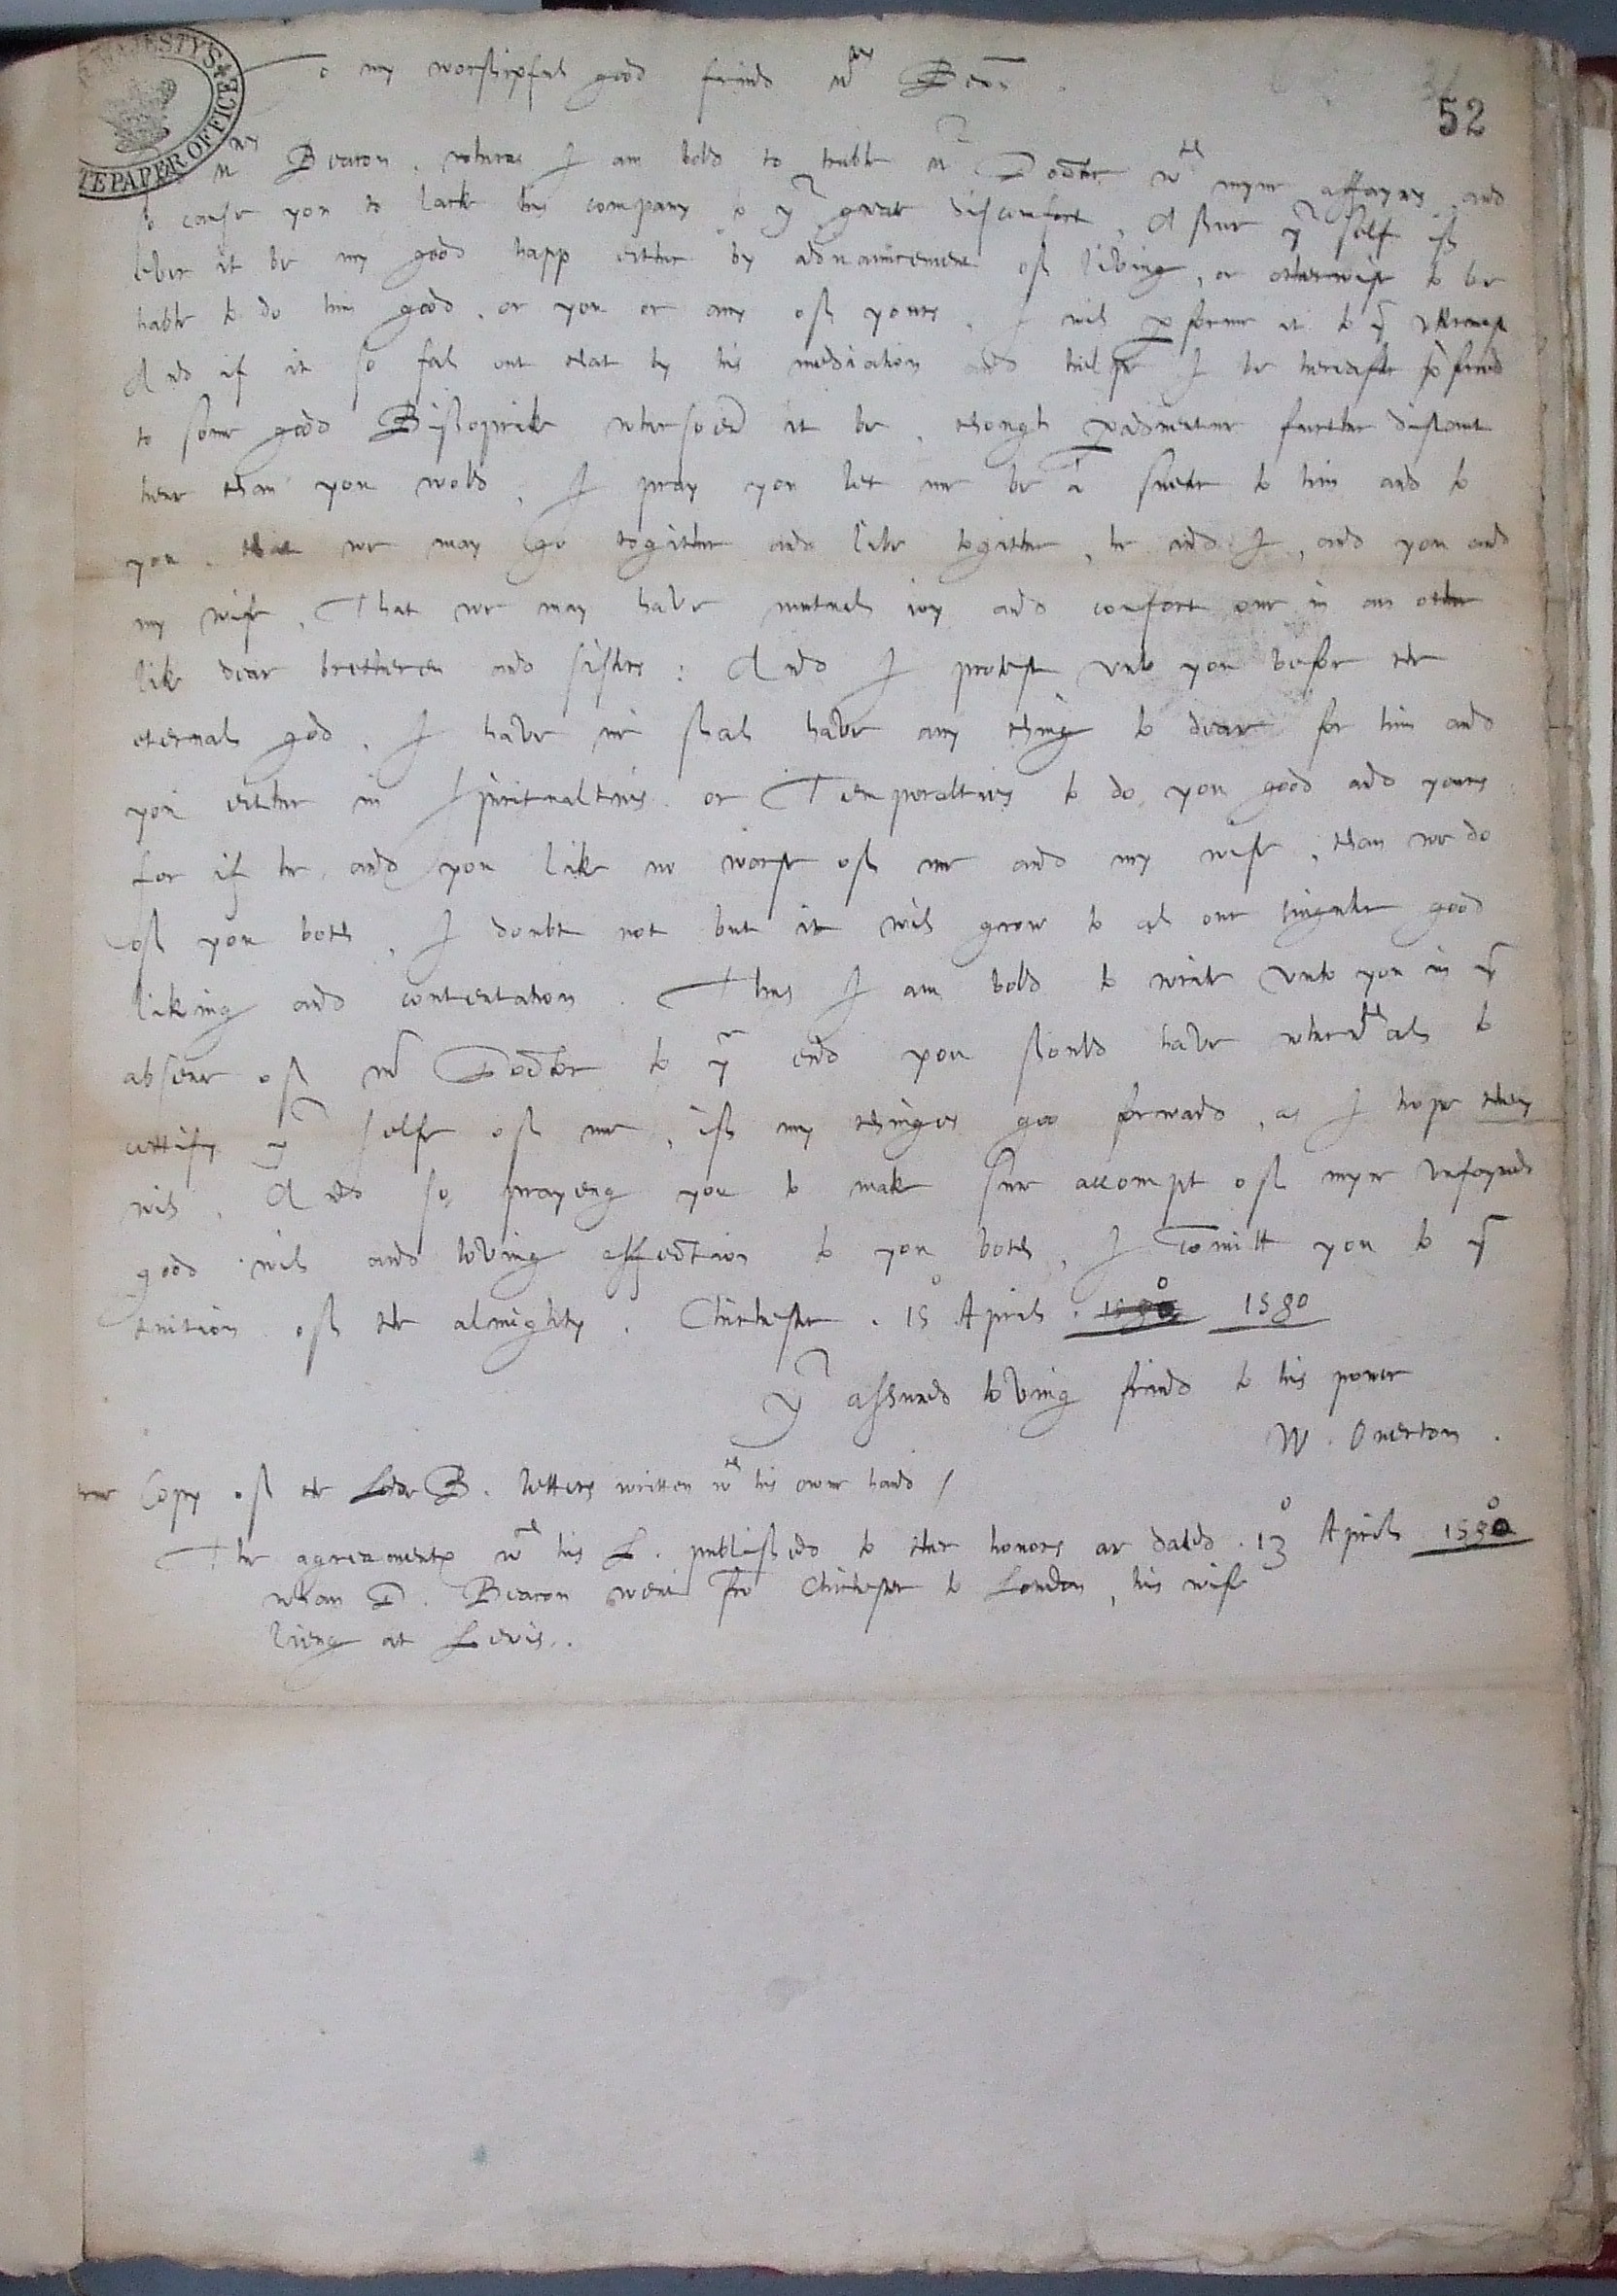 52
To my worshipful good friend mres Becon .
mres Beacon . wheras I am bold to truble mr Doctor wth myne affayres and
so cause you to lack his company to yr great discomfort , Assure yr self iff
ever it be my good happ either by advauncement off living , or otherwise to be
hable to do him good . or you or any off yours . I wil performe it to ye uttermost
And if it so fal out that by his mediation and helpe I be hereafter preferred
to some good Bishoprick whersoever it be , though peradventure further distant
hence than you wold , I pray you let me be a suter to him and to
you . that we may go together and live together , he and I , and you and
my wife , That we may have mutual ioy and comfort one in an other
like dear bretheren and sisters : And I protest unto you before the
eternal god , I have nor shal have any thing to dear for him and
you either in Spiritualties . or Temporalties to do you good and yours
for if he and you like no worse off me and my wife , than we do
off you both , I doubt not but it wil grow to al our singuler good
liking and contentation . Thus I am bold to write unto you in ye
absence off mr Doctor to ye end you should have wherwthal to
certify yr selfe off me , iff my thinges goo forward , as I hope they
wil . And so prayeng you to make sure accompt off myne unfayned
good wil and loving affection to you both , I comitt you to ye
tuition off the almighty . Chichester . 15 April . 1580 1580
Yr assured loving friend to his power
W . Overton .
Copy off the Lorde B . letters written wth his owne hand /
The agreements wth his L . published to ther honors ar dated . 13 April 1580
whan D . Beacon went fro Chichester to London , his wife
lieng at Lewis .